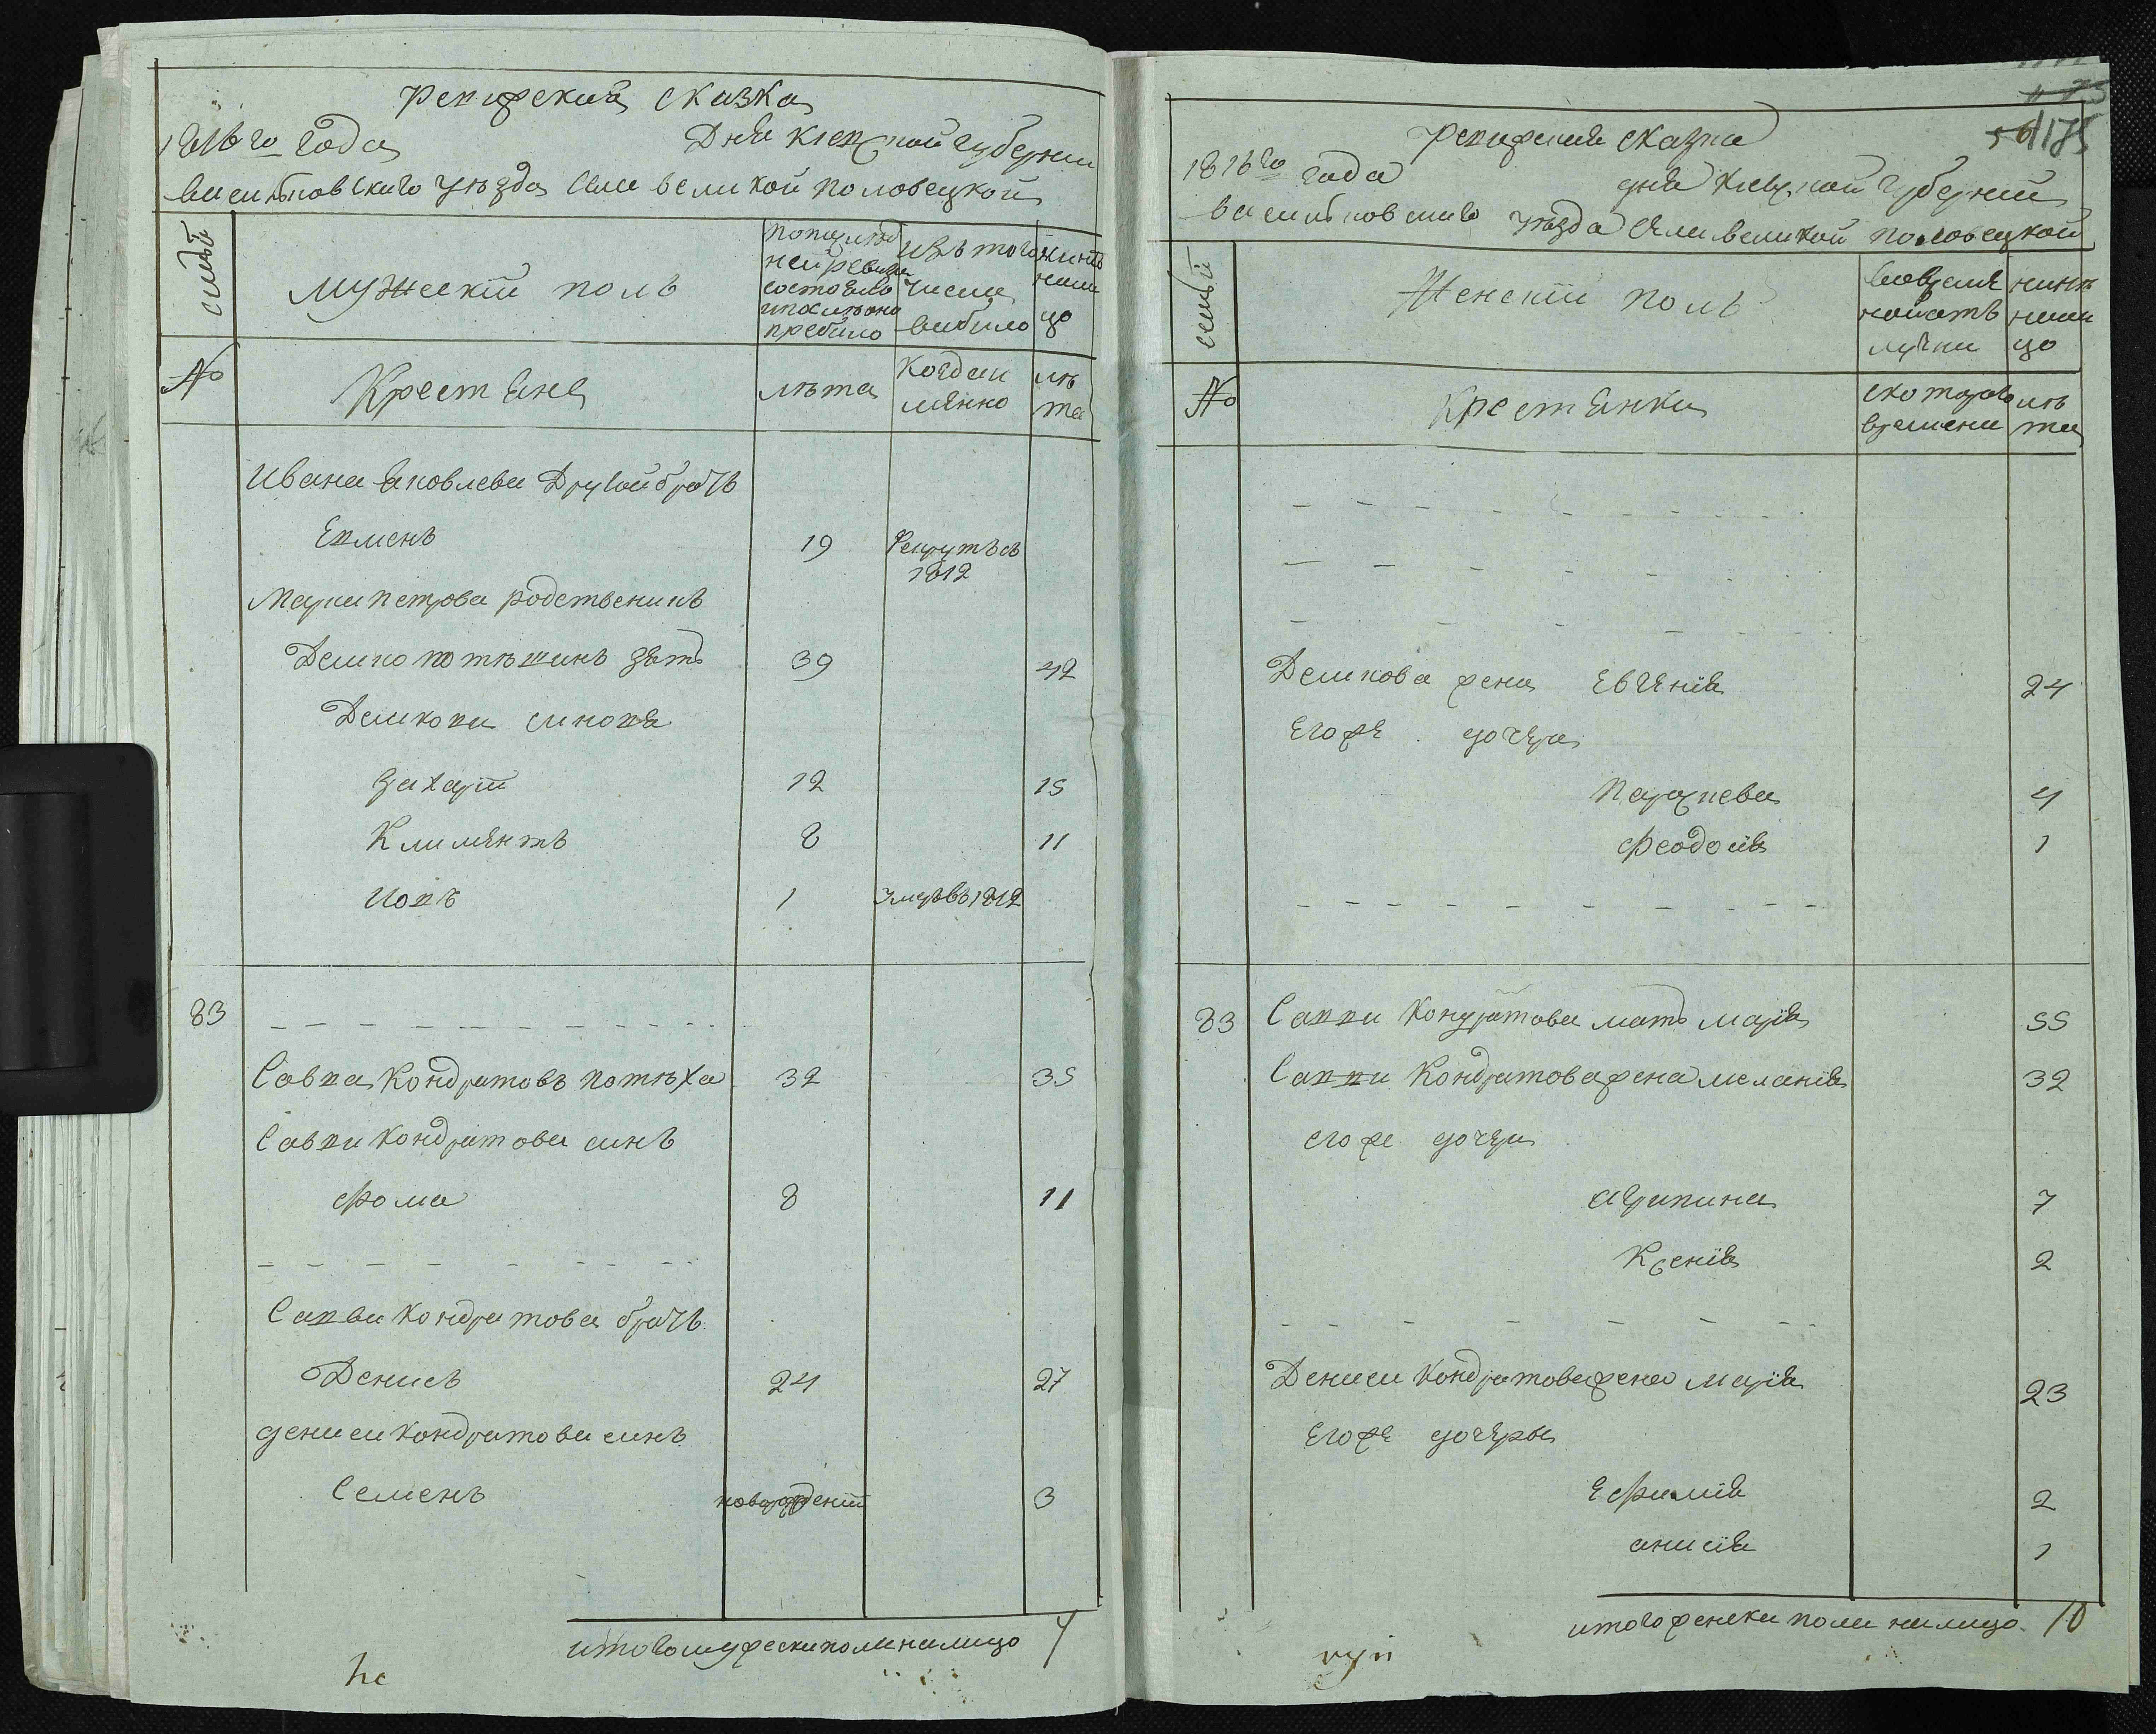 Ревизская сказка
1816го года Дня Киевской губернии
васильковского уезда села великой половецкой
семьи
мужеский полъ
по последней ревизии состояло и после оной прибыло
изъ того числа выбыло
ныне на лицо
№
Крестьяне
лѣта
Когда именно
лѣта
Ивана Яковлева Другой братъ
Евменъ 19 Рекрутъ съ 1812
Марка петрова родственикъ
Демко потѣшинъ зять 39 42
Демкови синовя
Захарій 12 15
Климентъ 8 11
Иовъ 1 Умеръ въ 1812
83
Савва Кондратовъ потѣха 32 35
Саввы Кондратова синъ
Фома 8 11
Саввы Кондратова братъ
Денисъ 24 27
дениса Кондратова синъ
Семенъ новорожденій 3
итого мужеска пола налицо 7
Ревизская сказка
1816го года дня Киевской губерніи
васильковского уезда села великой половецкой
175
семьи
Женскій полъ
во временной отлучки
ныне на лицо
№
Крестьянки
с которого времени
лѣта
Демкова жена Евгенія 24
Егоже дочери
Параскева 4
Феодосія 1
83 Саввы Кондратова мать марія 55
Саввы Кондратова жена меланія 32
егоже дочери
агрипина 7
Ксенія 2
Дениса Кондратова жена марія 23
Егоже дочеры
Ефимія 2
анисія 1
итого женска пола налицо 10